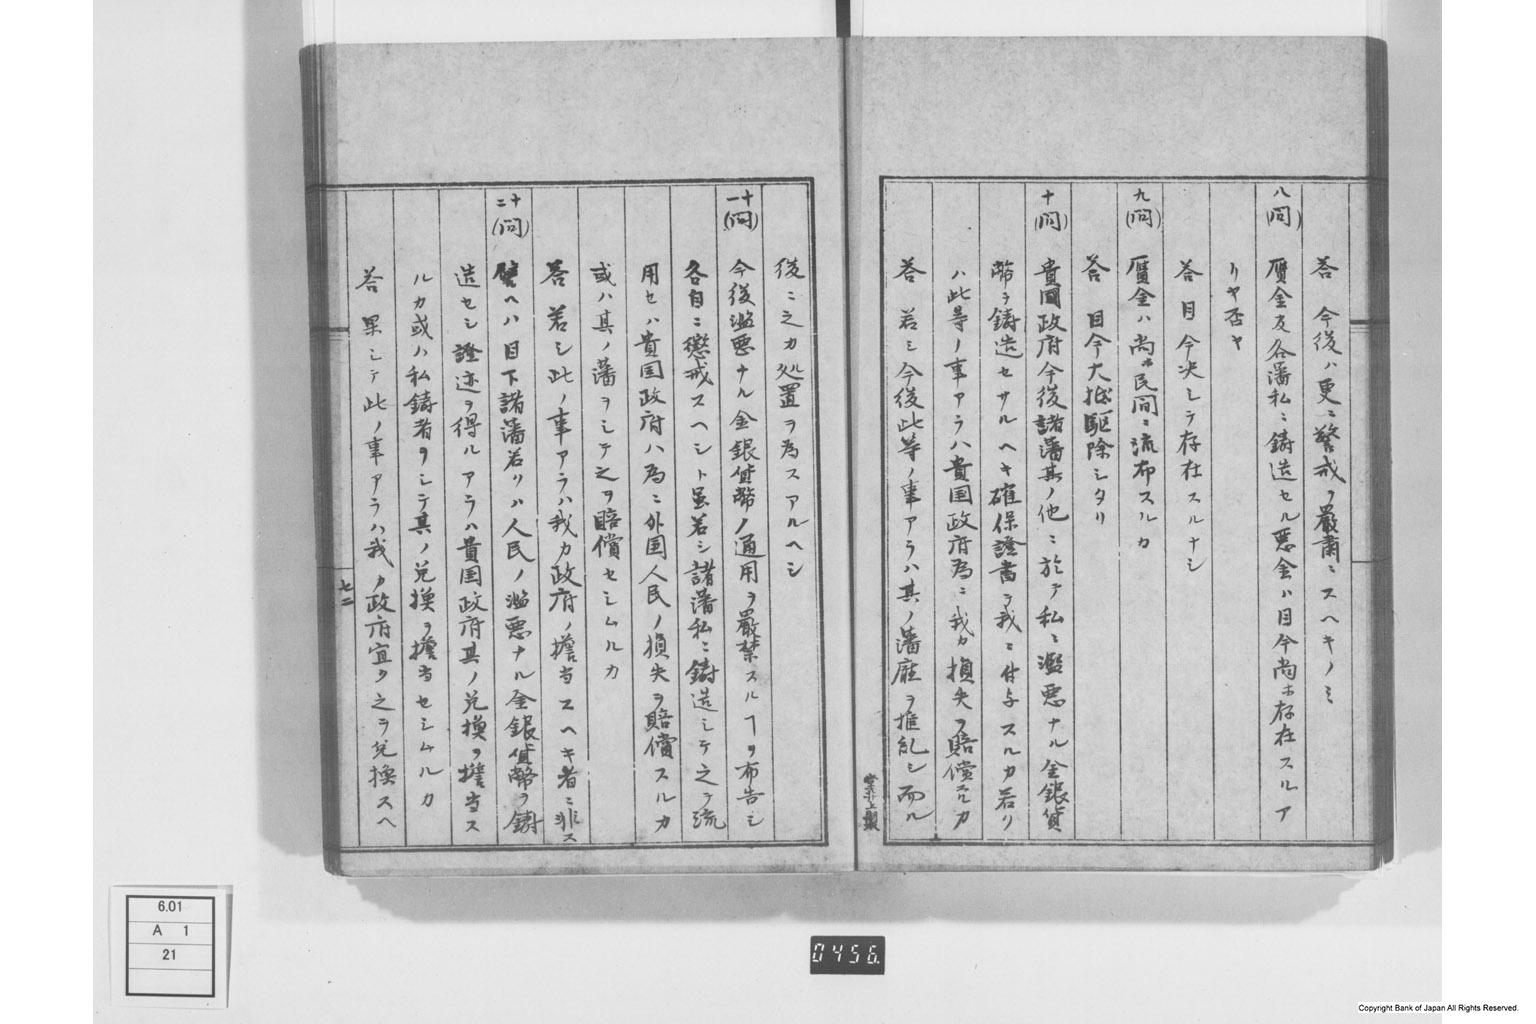 答 今後ハ更ニ警戒ヲ嚴肅ニスヘキノミ
八(問) 贋金及各藩私ニ鋳造セル悪金ハ目今尚ホ存在スルア
リヤ否ヤ
答 目今决シテ存在スルナシ
九(問) 贋金ハ尚ホ民間ニ流布スルカ
答 目今大抵駆除シタリ
十(問) 貴國政府今後諸藩其ノ他ニ於テ私ニ濫悪ナル金銀貨
幣ヲ鋳造セサルヘキ確保證書ヲ我ニ付与スルカ若リ
ハ此等ノ事アラハ貴国政府為ニ我カ損失ヲ賠償スルカ
答 若シ今後此等ノ事アラハ其ノ藩廰ヲ推糺シ而ル
後ニ之カ処置ヲ為スアルヘシ
十一(問) 今後濫悪ナル金銀貨幣ノ通用ヲ嚴禁スルヿヲ布告シ
各自ニ懲戒スヘシト虽若シ諸藩私ニ鋳造シテ之ヲ流
用セハ貴国政府ハ為ニ外国人民ノ損失ヲ賠償スルカ
或ハ其ノ藩ヲシテ之ヲ賠償セシムルカ
答 若シ此ノ事アラハ我カ政府ノ擔当スヘキ者ニ非ス
十二(問) 譬ヘハ目下諸藩若リハ人民ノ濫悪ナル金銀貨幣ヲ鋳
造セシ證迹ヲ得ルアラハ貴国政府其ノ兌換ヲ擔当ス
ルカ或ハ私鋳者ヲシテ其ノ兌換ヲ擔当セシムルカ
答 果シテ此ノ事アラハ我カ政府宜ク之ヲ兌換スヘ
七二
6.01
A 1
21
0456
Copyright Bank of Japan All Rights Reserved.